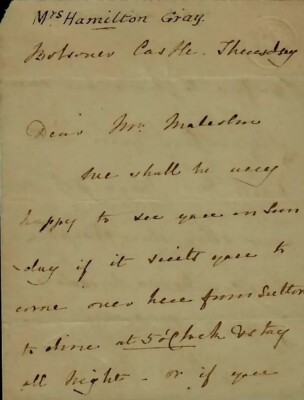 Mrs Hamilton Gray.
Bolsover Castle. Thursday
Dear Mr. Malcolm
We shall be very
happy to see you on Sun
-day if it suits you to
come over here from Sutton
to dine at 5 o'Clock & stay
all Night - or if you